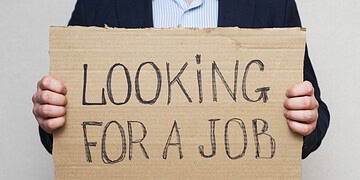 LOOKiNG
FOR A JOB